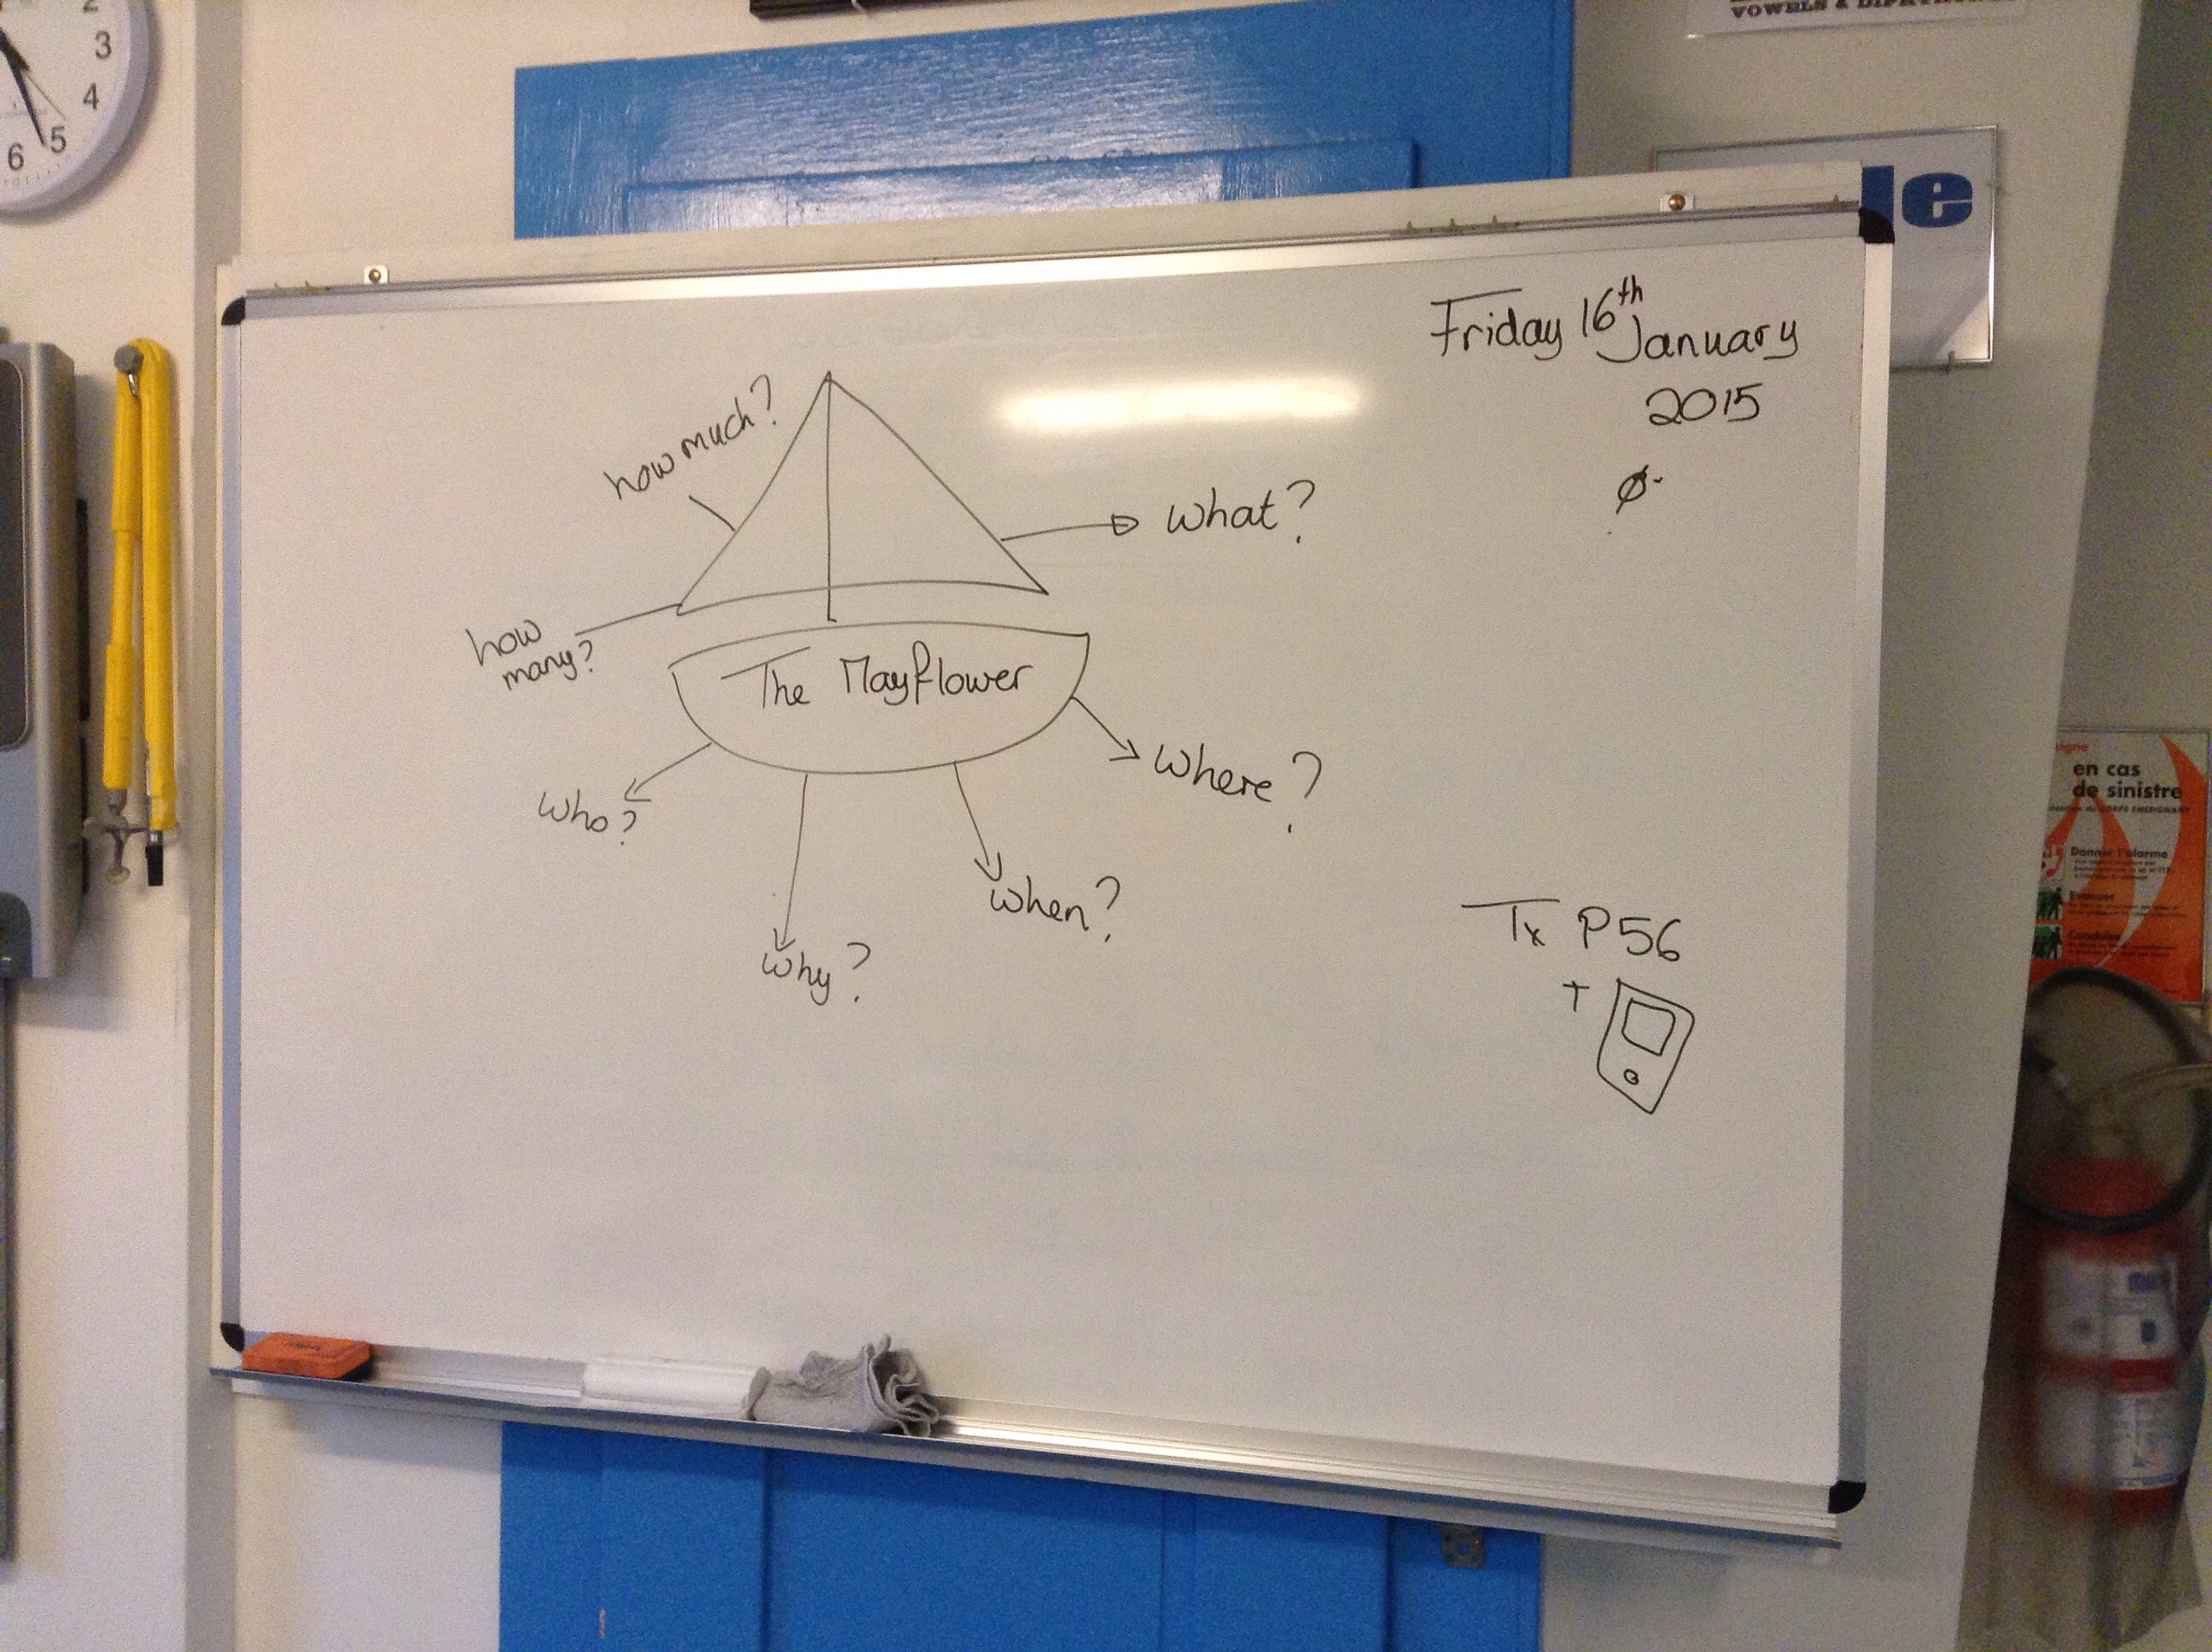 2
3
4
5
6
VOWELS &
le
Friday 16th
January
2015
how much?
what?
how
many?
The Mayflower
where?
who?
when?
why?
Tx P56
+
en cas
de sinistre
CORPS ENSEIGNANT
Donner l'alarme
Evacuer
Conduire